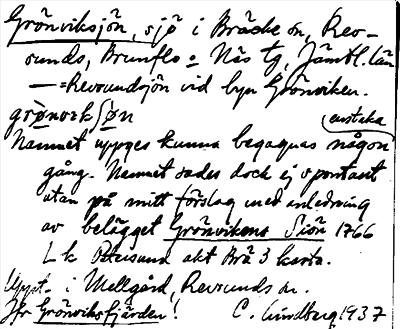 Grönviksjön, sjö i Bräcke sn, Rev-
sunds, Brunflo o Näs tg, Jämtl. län
— = Revsundsjön vid byn Grönviken.
grònvik∫ön
enstaka
Namnet uppges kunna begagnas någon
gång. Namnet sades dock ej spontant
utan på mitt förslag med anledning
av belägget Grönvikens Siön 1766
L k akt Brä 3 karta.
Uppt. i Mellgård, Revsunds sn.
Jfr Grönviksfjärden! C. Lindberg 1937